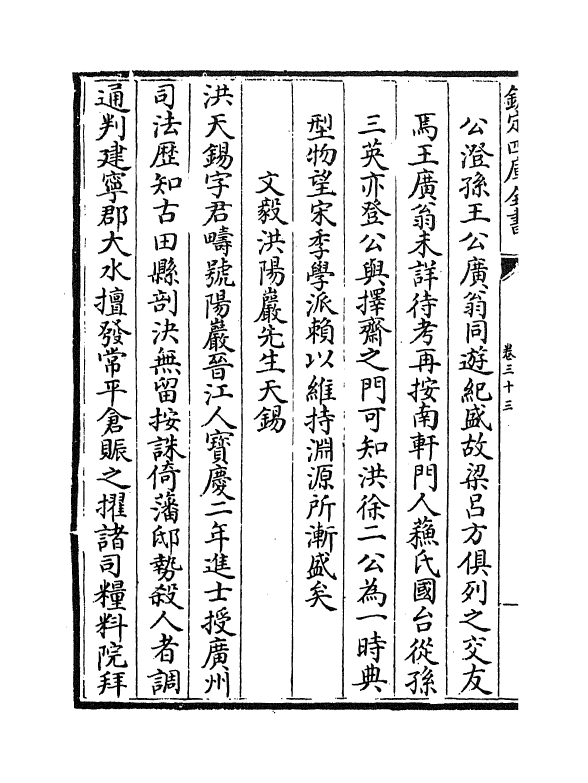 欽定四庫全書
卷三十三
公澄孫王公廣翁同遊紀盛故梁呂方俱列之交友
焉王廣翁未詳待考再按南軒門人蘓氏國台從孫
三英亦登公與擇齋之門可知洪徐二公為一時典
型物望宋季學派賴以維持淵源所漸盛矣
文毅洪陽巖先生天錫
洪天錫字君疇號陽巖晉江人寶慶二年進士授廣州
司法歴知古田縣剖決無留按誅倚藩邸勢殺人者調
通判建寧郡大水擅發常平倉賑之擢諸司糧料院拜